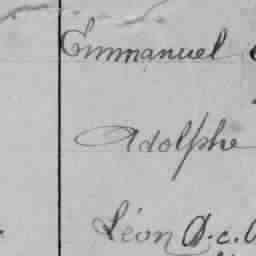 Emmanuel
Adolphe
Léon A.c.